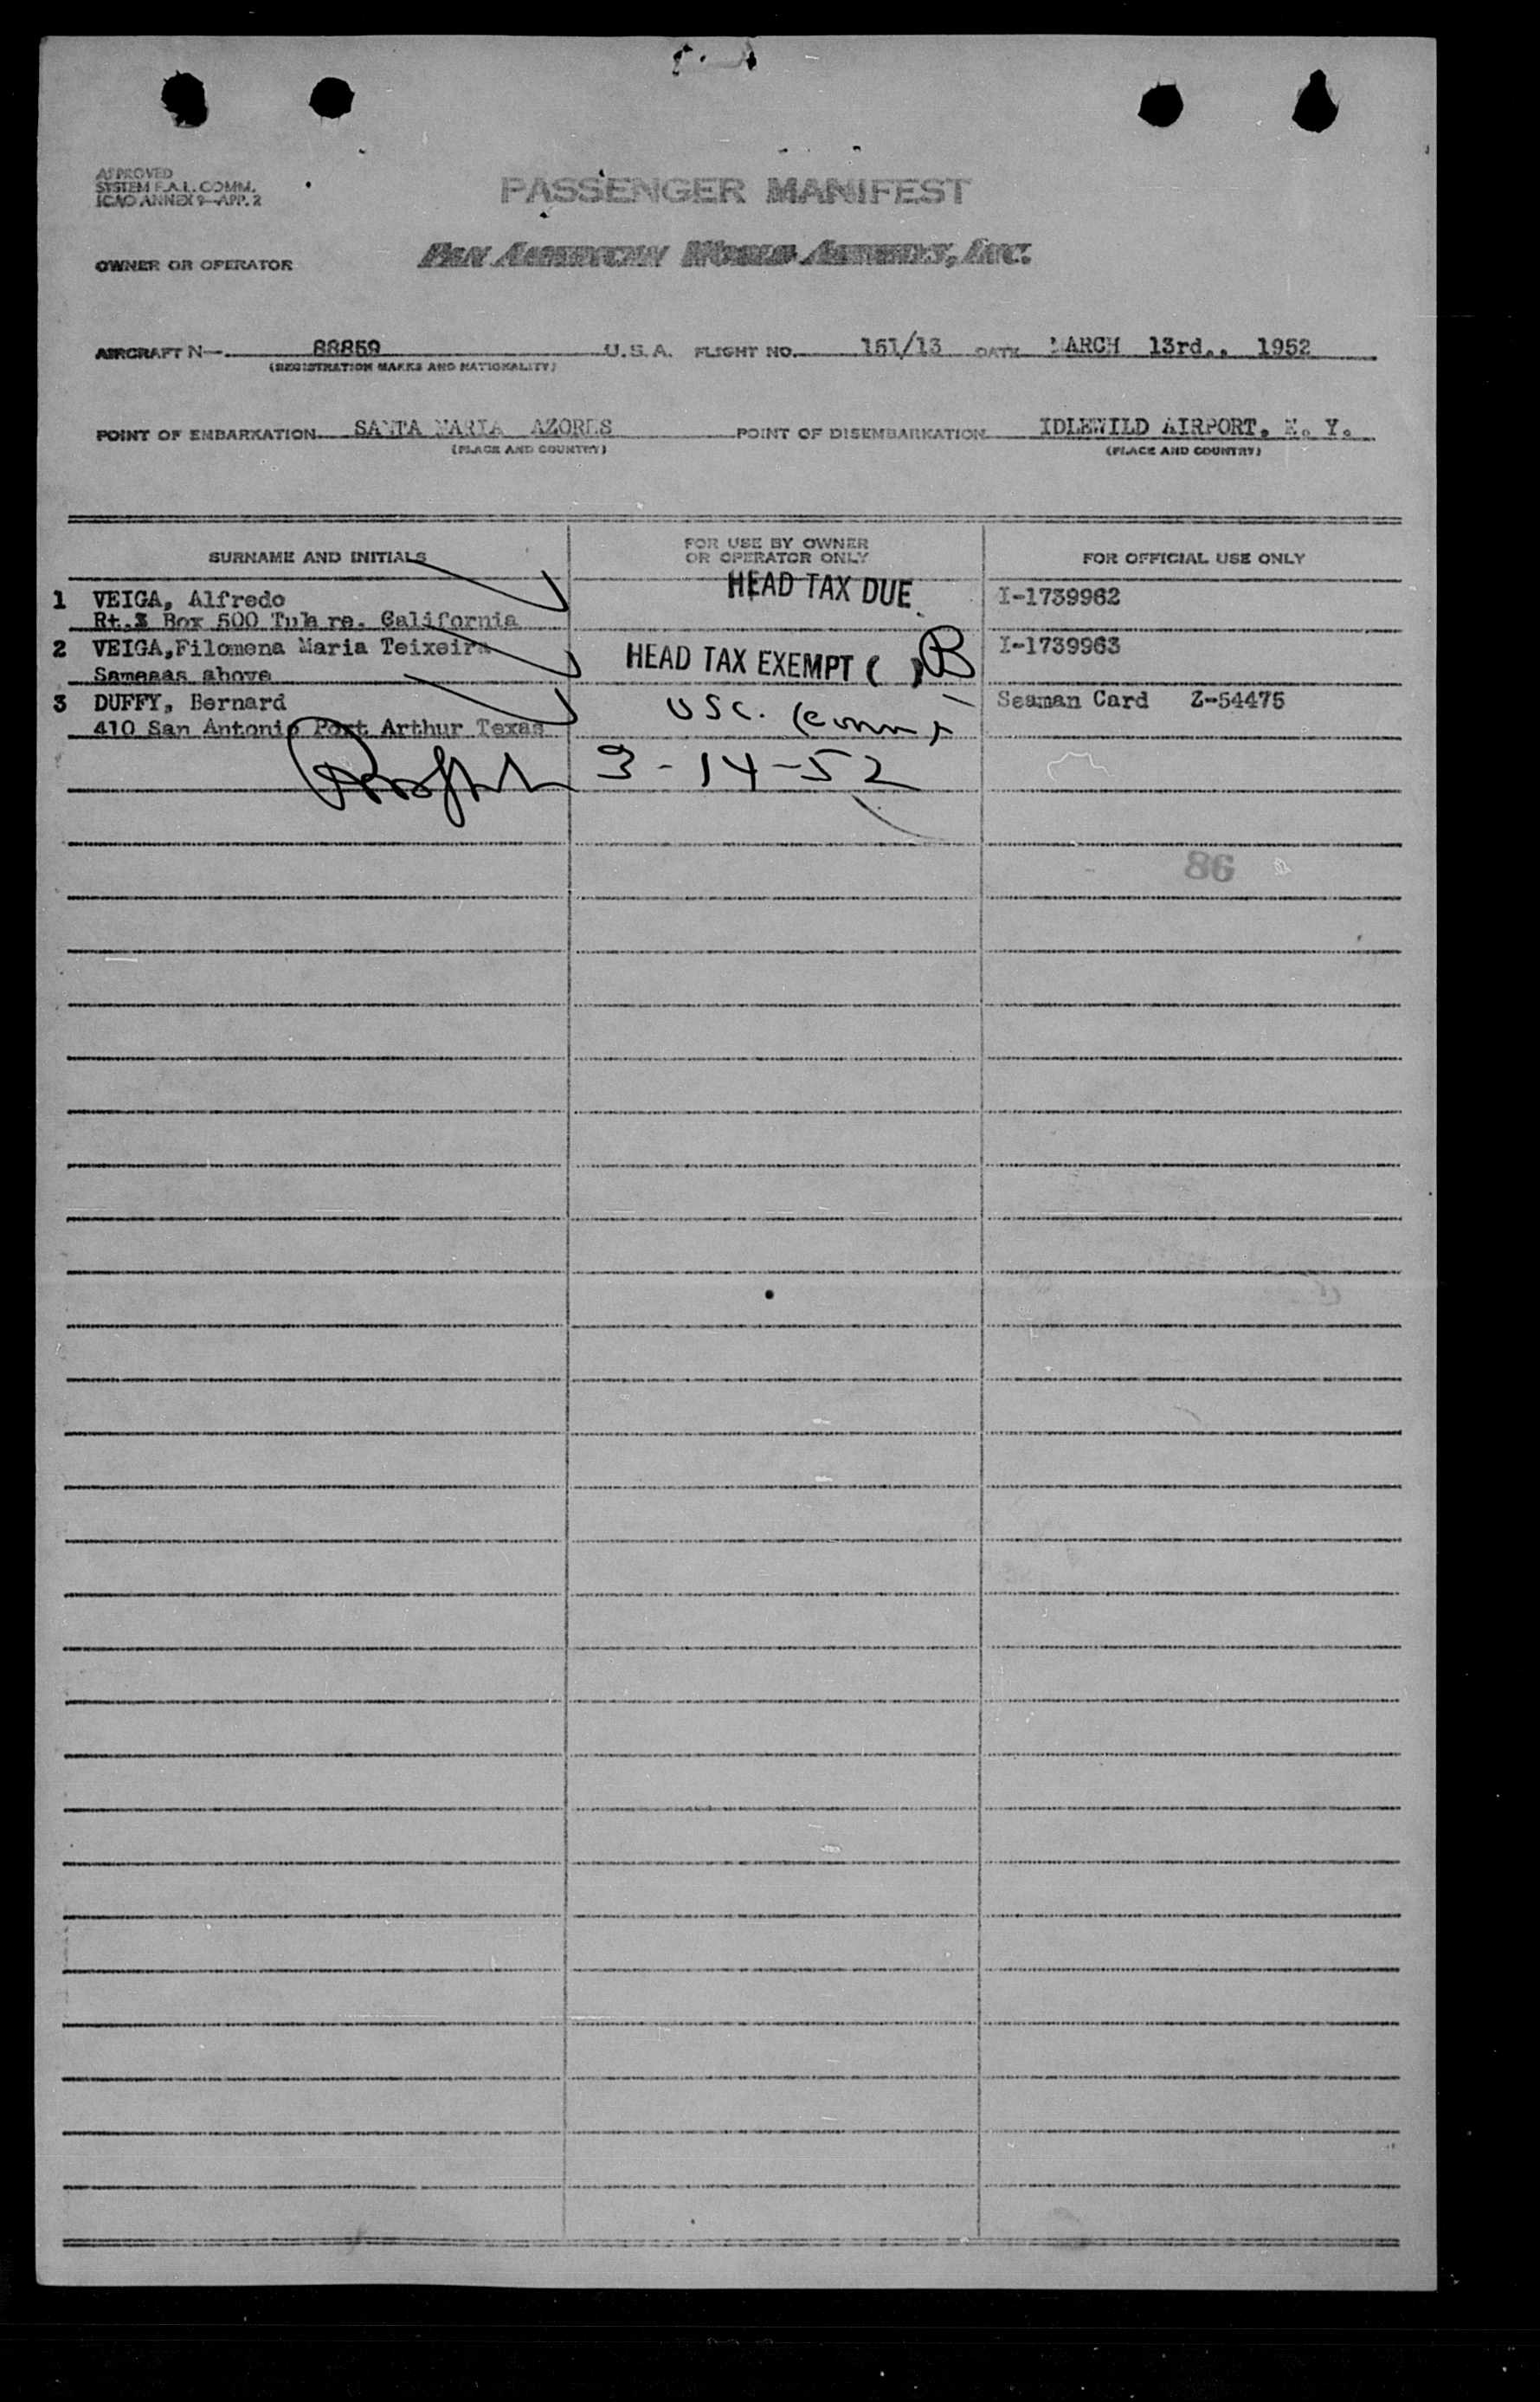 APPROVED
SYSTEM F.A.L. COMM.
ICAO ANNEX 9—APP. 2
PASSENGER MANIFEST
OWNER OR OPERATOR PAN AMERICAN WORLD AIRWAYS, INC.
AIRCRAFT N— 88859 U.S.A. FLIGHT NO. 151/13 DATE MARCH 13rd., 1952
(REGISTRATION MARKS AND NATIONALITY)
POINT OF EMBARKATION SANTA MARIA AZORES POINT OF DISEMBARKATION IDLEWILD AIRPORT, N. Y.
(PLACE AND COUNTRY) (PLACE AND COUNTRY)
SURNAME AND INITIALS FOR USE BY OWNER OR OPERATOR ONLY FOR OFFICIAL USE ONLY
1 VEIGA, Alfredo HEAD TAX DUE I-1739962
Rt.3 Box 500 Tulare. California
2 VEIGA,Filomena Maria Teixeira HEAD TAX EXEMPT ( ) B I-1739963
Sameaas above
3 DUFFY, Bernard USC. Seaman Card Z-54475
410 San Antonio Port Arthur Texas
3-14-52
86